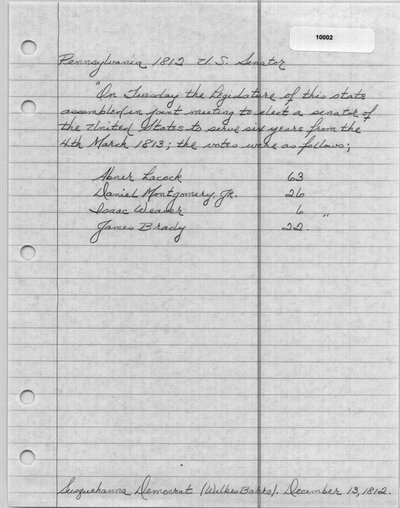 10002
Pennsylvania 1812 U.S. Senator
"On Tuesday the Legislature of this state
assembled in joint meeting to elect a senator of
the United States to serve six years from the
4th March 1813; the votes were as follows;
Abner Lacock 63
Daniel Montgomery, Jr. 26
Isaac Weaver 6 "
James Brady 22.
Susquehanna Democrat (Wilkes Barre). December 13, 1812.